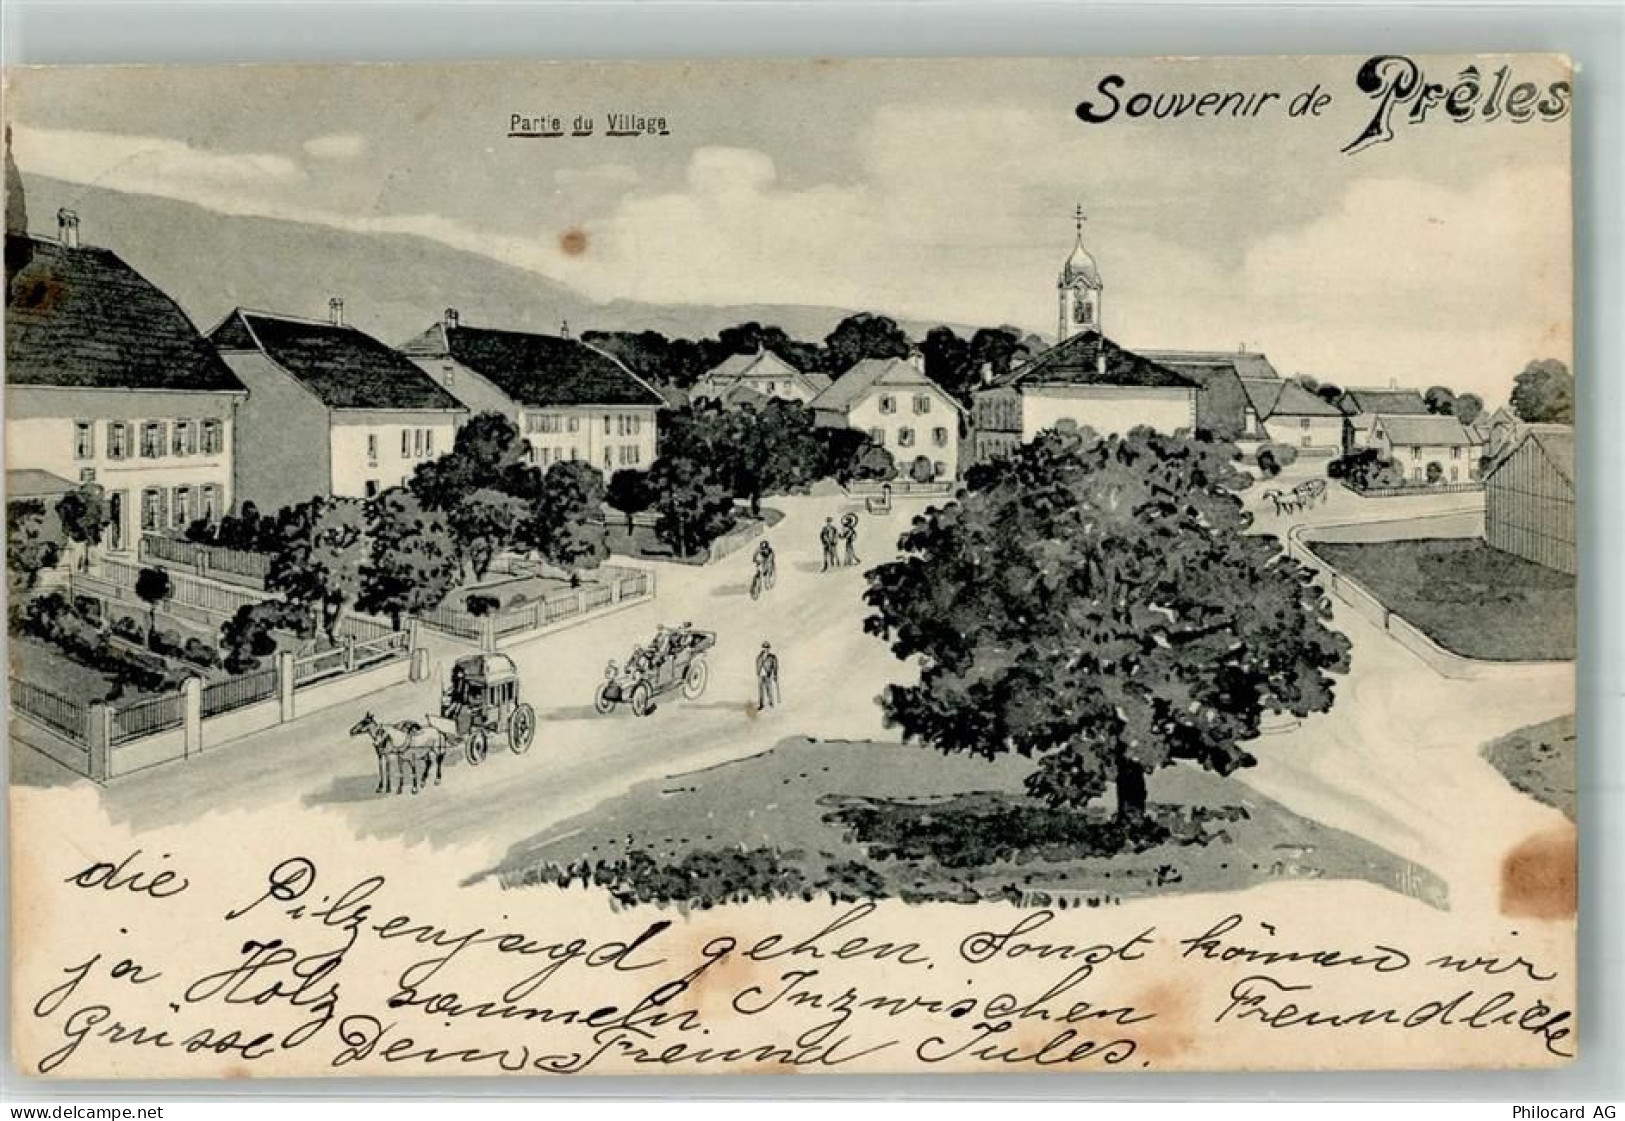 Souvenir de Prêles
Partie du Village
die Pilzenjagd gehen. Sonst können wir
ja Holz sammeln. Inzwischen Freundliche
Grüsse Dein Freund Jules.
www.delcampe.net
Philocard AG